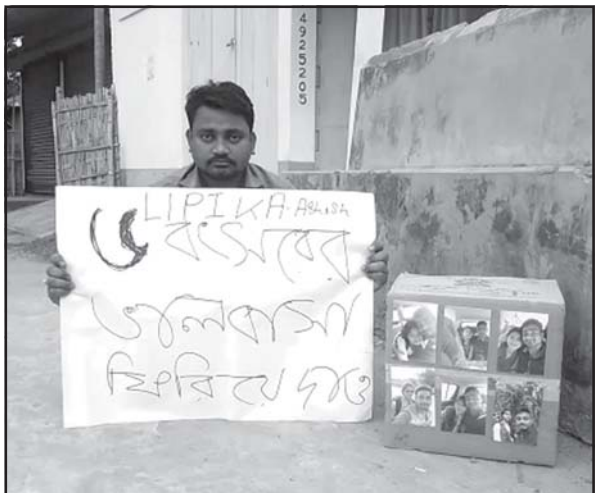 4925205
LIPIKA-Ashish
বৎসরের
ভালবাসা
ফিরিয়ে দাও